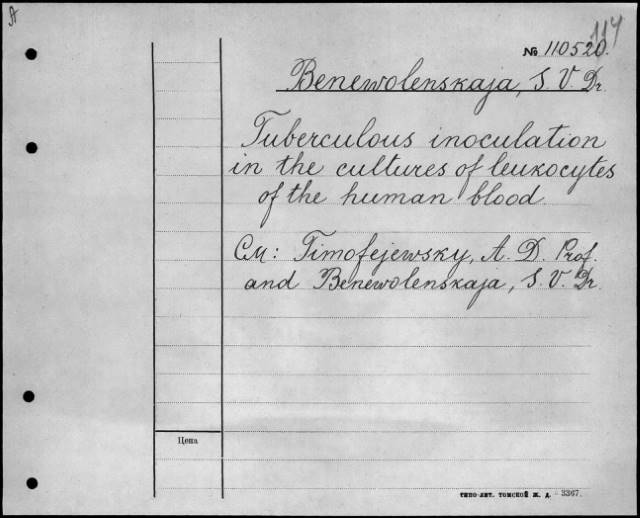 A
114
№ 110520.
Benewolenskaja, S. V. Dr.
Tuberculous inoculation
in the cultures of leukocytes
of the human blood.
См: Timofejewsky, A. D. Prof.
and Benewolenskaja, S. V. Dr.
Цена
ТИПО-ЛИТ. ТОМСКОЙ Ж. Д. - 3367.